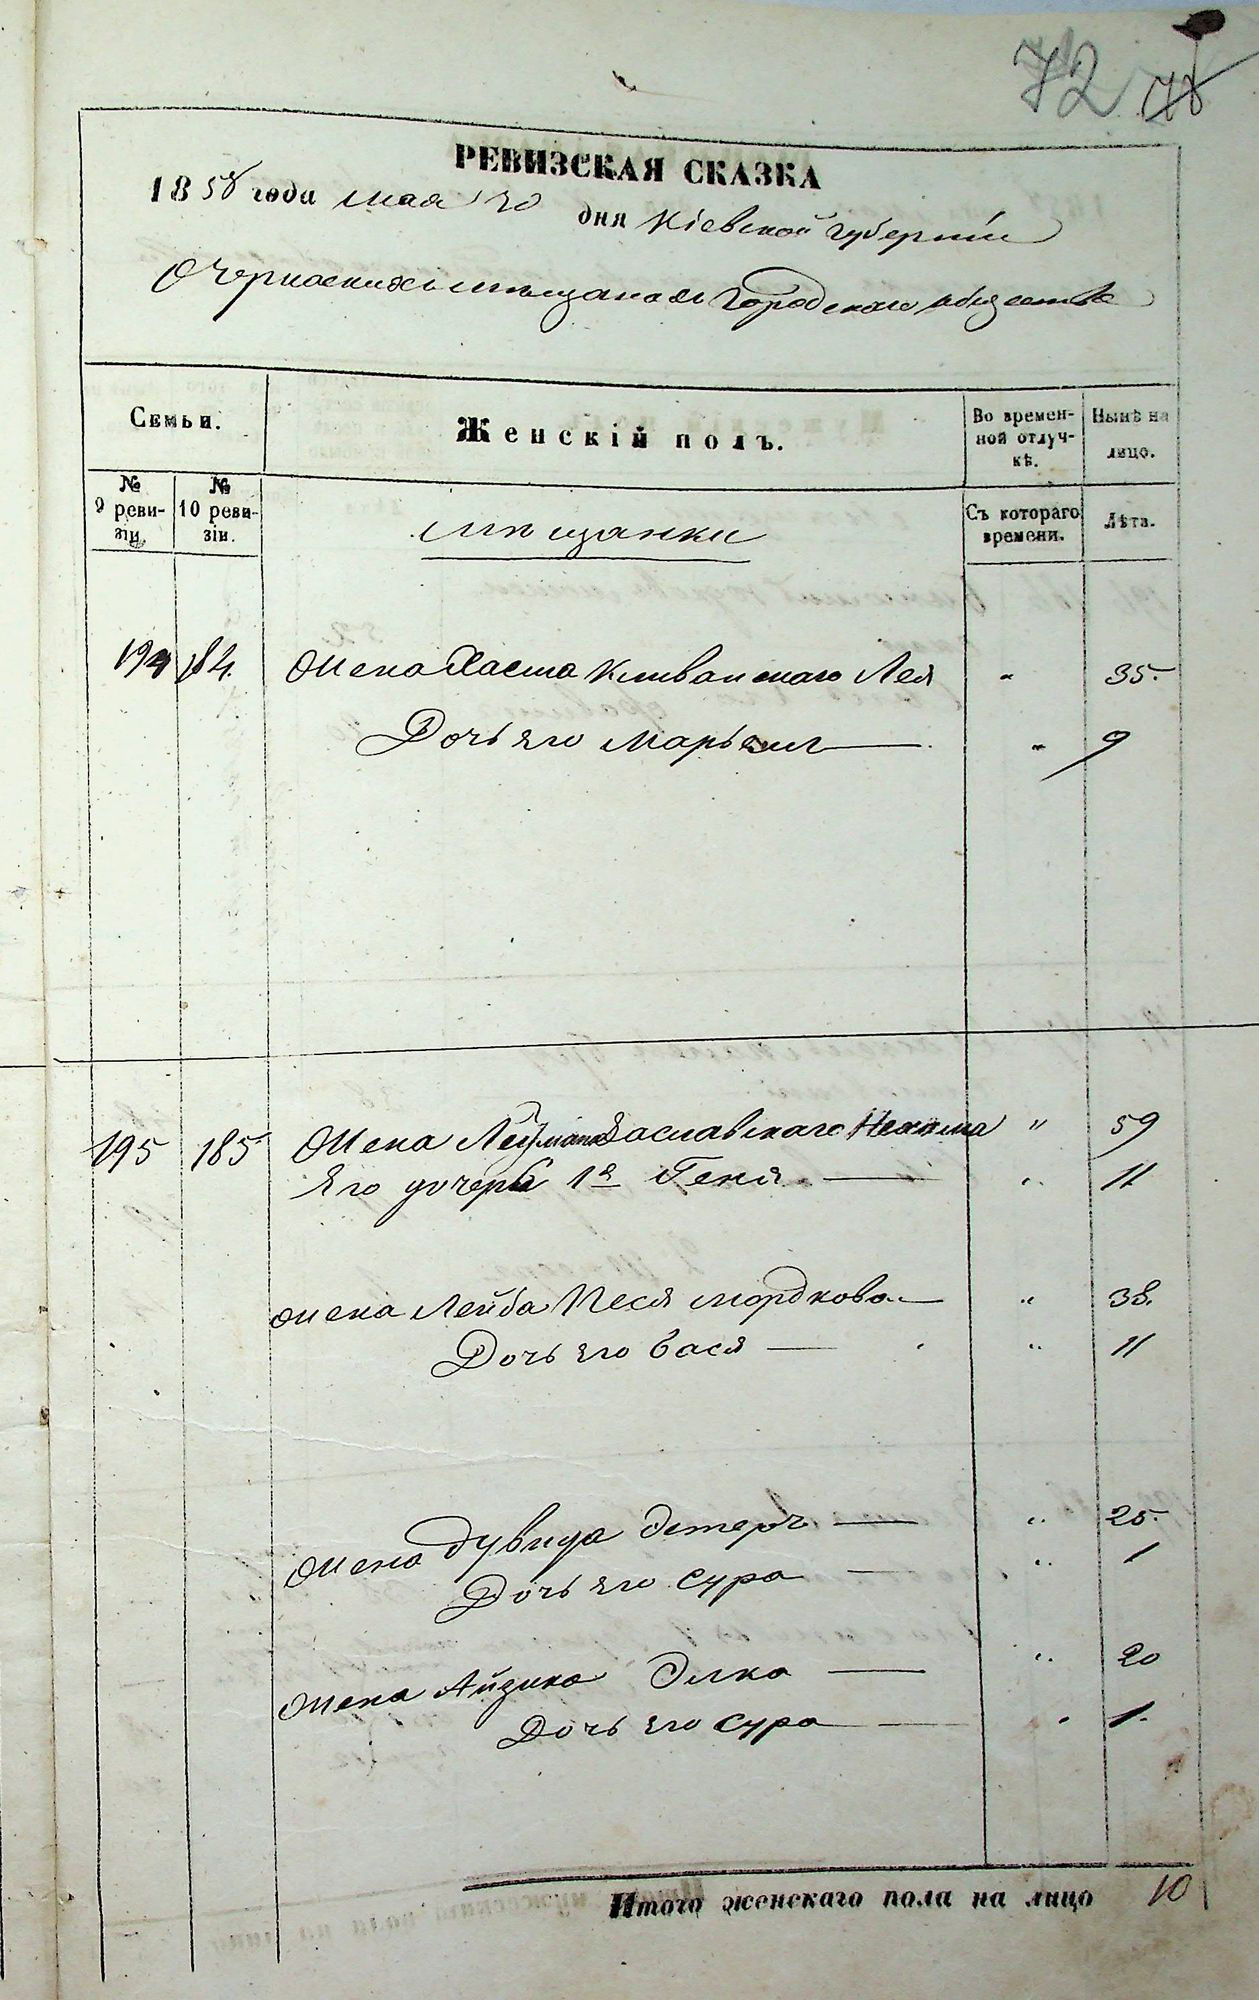 72 78
РЕВИЗСКАЯ СКАЗКА
1858 года мая 20 дня Кіевской губерніи
О Черкаскихъ мѣщанахъ Городскаго общества
Семьи.
Женскій полъ.
Во временной отлучкѣ.
Нынѣ на лицо.
№ 9 ревизіи.
№ 10 ревизіи.
мѣщанки
Съ котораго времени.
Лѣта.
194 184. Жена Кливанскаго Лея " 35.
Дочь его Марьям — " 9
195 185 Жена Заславскаго Нехама " 59
Его дочерь 1я Геня — " 11
Жена Лейба Песя Мордкова — " 38.
Дочь его Бася — " 11
Жена Дувида Эстеръ — " 25.
Дочь его Сура — " 1
Жена Айзика Элка — " 20
Дочь его Сура — " 1.
Итого женскаго пола на лицо 10